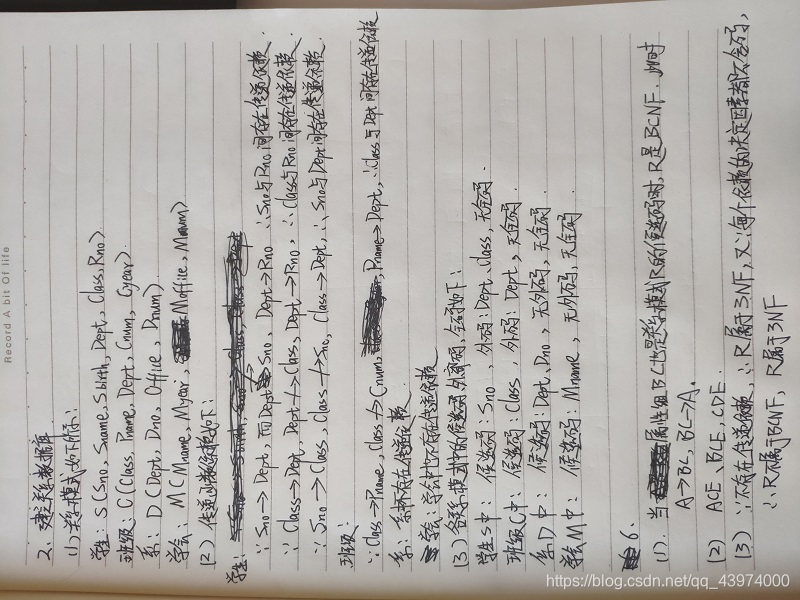 Record A bit Of life
2、建立关系数据库
(1)关系模式如下所示：
学生：S(Sno, Sname, Sbirth, Dept, Class, Rno)
班级：C(Class, Pname, Dept, Cnum, Cyear)
系：D(Dept, Dno, Office, Dnum)
学会：M(Mname, Myear, Maffile, Mnum)
(2)传递函数依赖如下：
学生：
∵ Sno→Dept, 而Dept↛Sno, Dept→Rno ∴Sno与Rno间存在传递依赖.
∵ Class→Dept, Dept↛Class, Dept→Rno, ∴Class与Rno间存在传递依赖.
∵ Sno→Class, Class↛Sno, Class→Dept, ∴Sno与Dept间存在传递依赖.
班级：
∵Class→Pname, Class↛Cnum, Pname→Dept, ∴Class与Dept间存在传递依赖
系：系中不存在传递依赖.
学会：学会中也不存在传递依赖
(3)各关系模式中的候选码，外部码，全码如下：
学生S中：候选码：Sno, 外码：Dept、Class, 无全码.
班级C中：候选码：Class, 外码：Dept, 无全码.
系D中：候选码：Dept、Dno, 无外码, 无全码.
学会M中：候选码：Mname, 无外码, 无全码.
6.
(1). 当属性组BC也是关系模式R的候选码时, R是BCNF. 此时
A→BC, BC→A.
(2) ACE、BCE、CDE.
(3) ∵不存在传递依赖, ∴R属于3NF, 又∵每个依赖的决定因素都不含码,
∴R不属于BCNF, R属于3NF
https://blog.csdn.net/qq_43974000